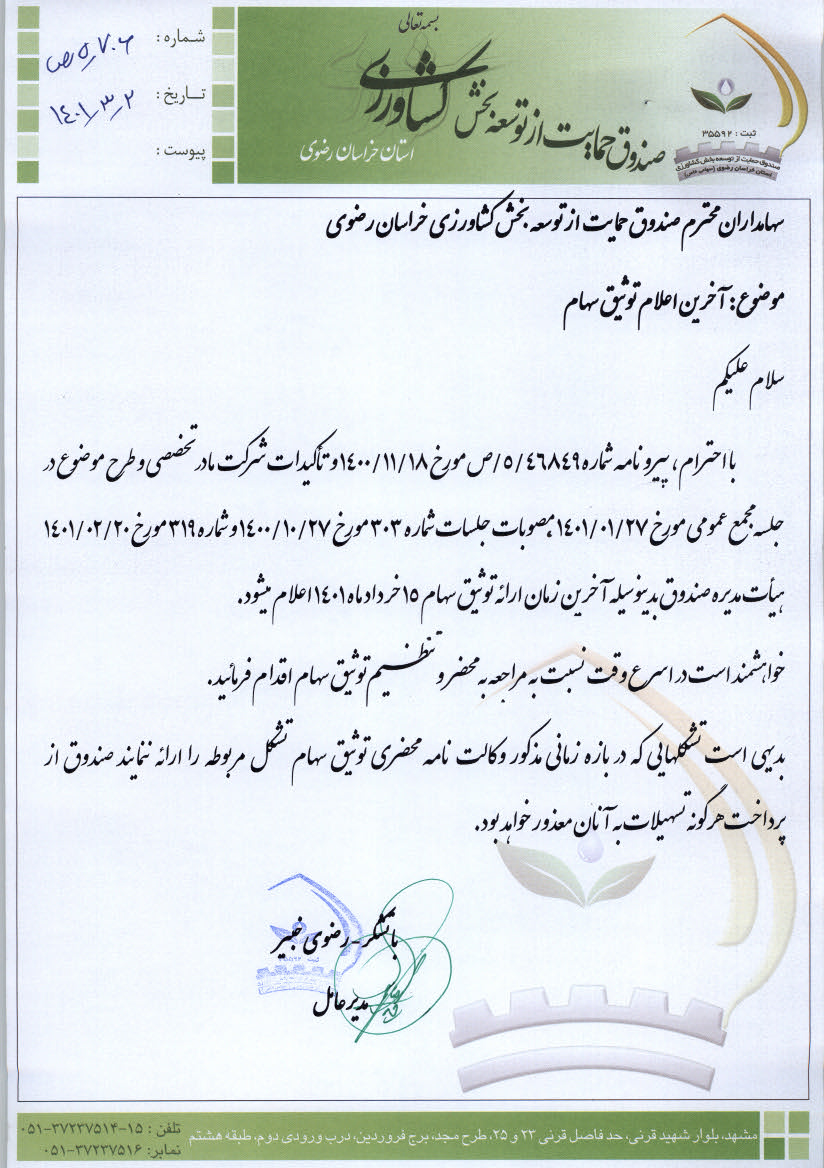 بسمه تعالی
صندوق حمایت از توسعه بخش کشاورزی
استان خراسان رضوی
ثبت : ۳۵۵۹۲
صندوق حمایت از توسعه بخش کشاورزی
استان خراسان رضوی (سهامی خاص)
شماره :
تاریخ : ۱۴۰۱/۳/۲
پیوست :
سهامداران محترم صندوق حمایت از توسعه بخش کشاورزی خراسان رضوی
موضوع: آخرین اعلام توثیق سهام
سلام علیکم
با احترام، پیرو نامه شماره ۵/۴۶۸۴۹/ص مورخ ۱۴۰۰/۱۱/۱۸ و تأکیدات شرکت مادر تخصصی و طرح موضوع در
جلسه مجمع عمومی مورخ ۱۴۰۱/۰۱/۲۷، مصوبات جلسات شماره ۳۰۳ مورخ ۱۴۰۰/۱۰/۲۷ و شماره ۳۱۹ مورخ ۱۴۰۱/۰۲/۲۰
هیأت مدیره صندوق بدینوسیله آخرین زمان ارائه توثیق سهام ۱۵ خرداد ماه ۱۴۰۱ اعلام میشود.
خواهشمند است در اسرع وقت نسبت به مراجعه به محضر و تنظیم توثیق سهام اقدام فرمائید.
بدیهی است تشکلهایی که در بازه زمانی مذکور وکالت نامه محضری توثیق سهام تشکل مربوطه را ارائه ننمایند صندوق از
پرداخت هرگونه تسهیلات به آنان معذور خواهد بود.
با تشکر - رضوی خبیر
مدیر عامل
مشهد، بلوار شهید قرنی، حد فاصل قرنی ۲۳ و ۲۵، طرح مجد، برج فروردین، درب ورودی دوم، طبقه هشتم
تلفن : ۱۵-۳۷۲۳۷۵۱۴-۰۵۱
نمابر: ۳۷۲۳۷۵۱۶-۰۵۱